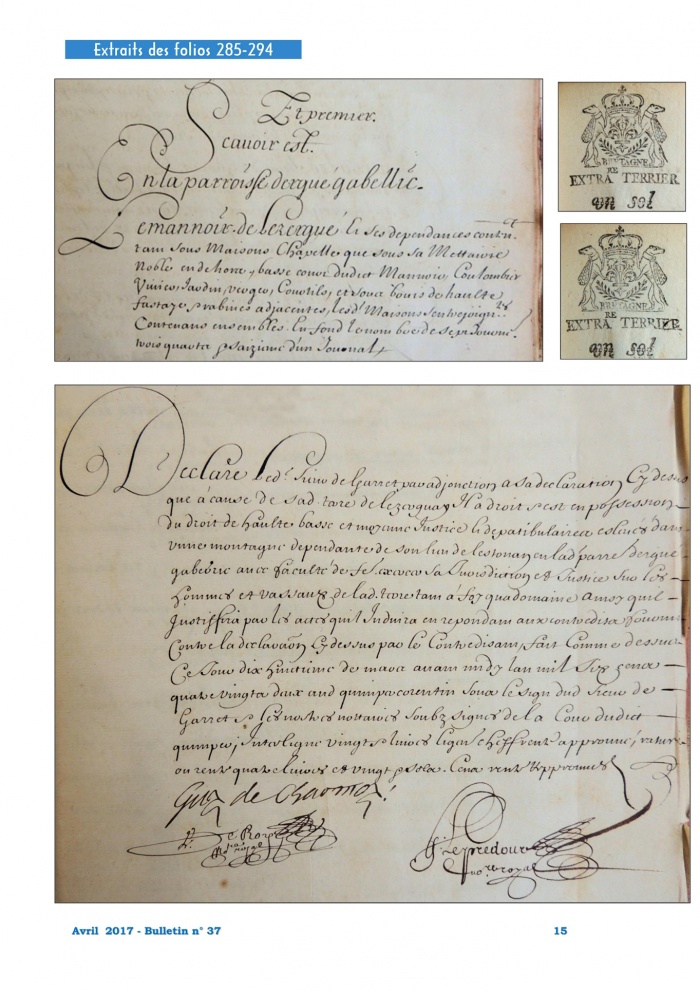 Extraits des folios 285-294
Et premier.
Scavoir est.
En la parroisse dergué gabellic.
Le mannoir de lezergué et ses dependances
tam sous Maisons Chapelle que sous sa Mettairie
Noble en dehors, basse cour dudict Mannoir, Coulombier
jardin, verger, Courtils, et soub bouis de haulte
fustaye, rabines adjacentes, lesd. Maisons
Contenans ensembles En fond
trois quarts seizieme d'un Journal
BRETAGNE
RE
EXTRA TERRIER
un sol
BRETAGNE
RE
EXTRA TERRIER
un sol
Declare led. Sieur de Garret par adjonction a sa declaration Cy dessus
que a cause de sad. tere de lezergue Il a droit et est en possession
du droit de haulte basse et moyenne Justice et de patibulaires dans
une montagne dependante de son lieu de lestonan en lad. parre dergue
gabelic avec faculté de sa Jurisdiction et Justice sur les
hommes et vassaux de lad. terre tam à foy que domaine Ainsy quil
Justiffira par les actes quil Induira en repondam aux contredits
Contre la declaration Cy dessus par le Contredisam, fait Comme dessus
Ce Jour dix huictieme de mars avam midy lan mil Six Cents
quatre vingts deux aud quimper corentin soubs le sign dud Sieur de
Garret et les nostres nottaires soubz signes de la Cour dudict
quimper, Interligne vingt livres approuvé, rature
ou rente quatre livres et vingt Cens rente Approuves
Guy de Charmoy
not royal
Le predour
no. royal
Avril 2017 - Bulletin n° 37
15